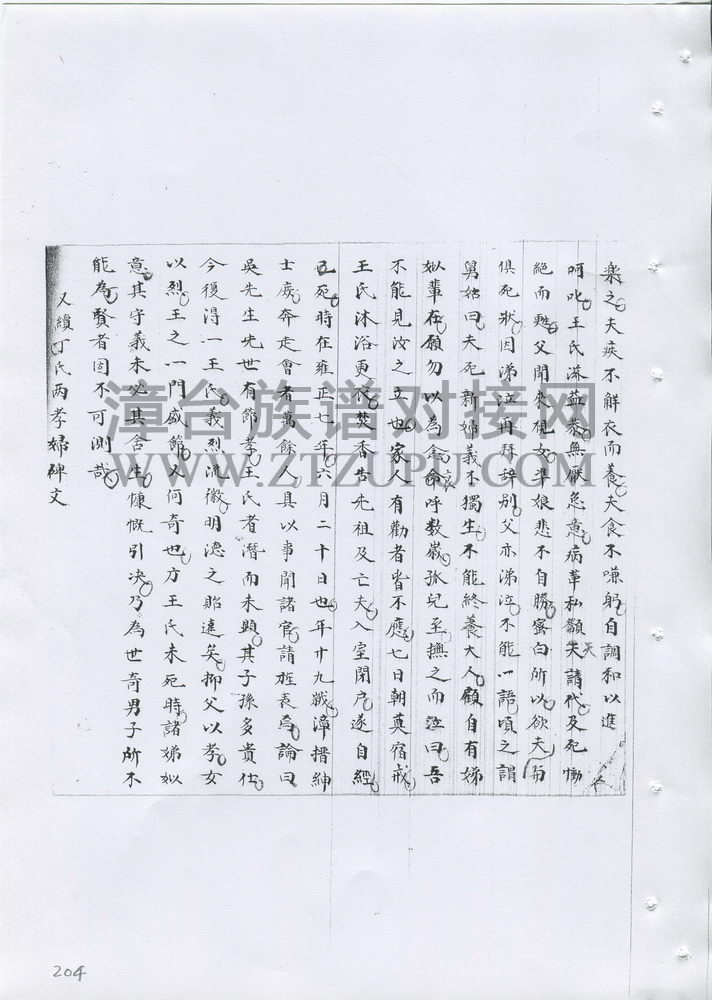 樂之夫疾不解衣而養夫食不嗛躬自調和以進
呵叱王氏滌益恭無厭怠意病革私籲天請代及死慟
絕而甦父聞來視女準娘悲不自勝蜜白所以欲夫
俱死狀因涕泣再拜辞别父亦涕泣不能一語頃之謂
舅姑曰夫死新婦義不獨生不能終養大人顧自有娣
姒輩在願勿以為念命呼数嵗孤兒至撫之而泣曰吾
不能見汝之立也家人有勸者皆不應七日朝奠宿戒
王氏沐浴更衣焚香告先祖及亡夫入室閉户遂自經
死時在雍正七年六月二十日也年廿九嵗漳搢紳
士庻奔走會者萬餘人具以事聞諸官請旌表焉論曰
吳先生先世有節孝王氏者潛而未顕其子孫多貴仕
今復得一王氏義烈流徽明德之貽遠矣抑父以孝女
以烈王之一門盛節又何奇也方王氏未死時諸娣姒
意其守義未必其舍生慷慨引决乃為世奇男子所不
能為賢者固不可測哉
又續丁氏两孝婦碑文
漳台族谱对接网
WWW.ZTZUPU.COM
204